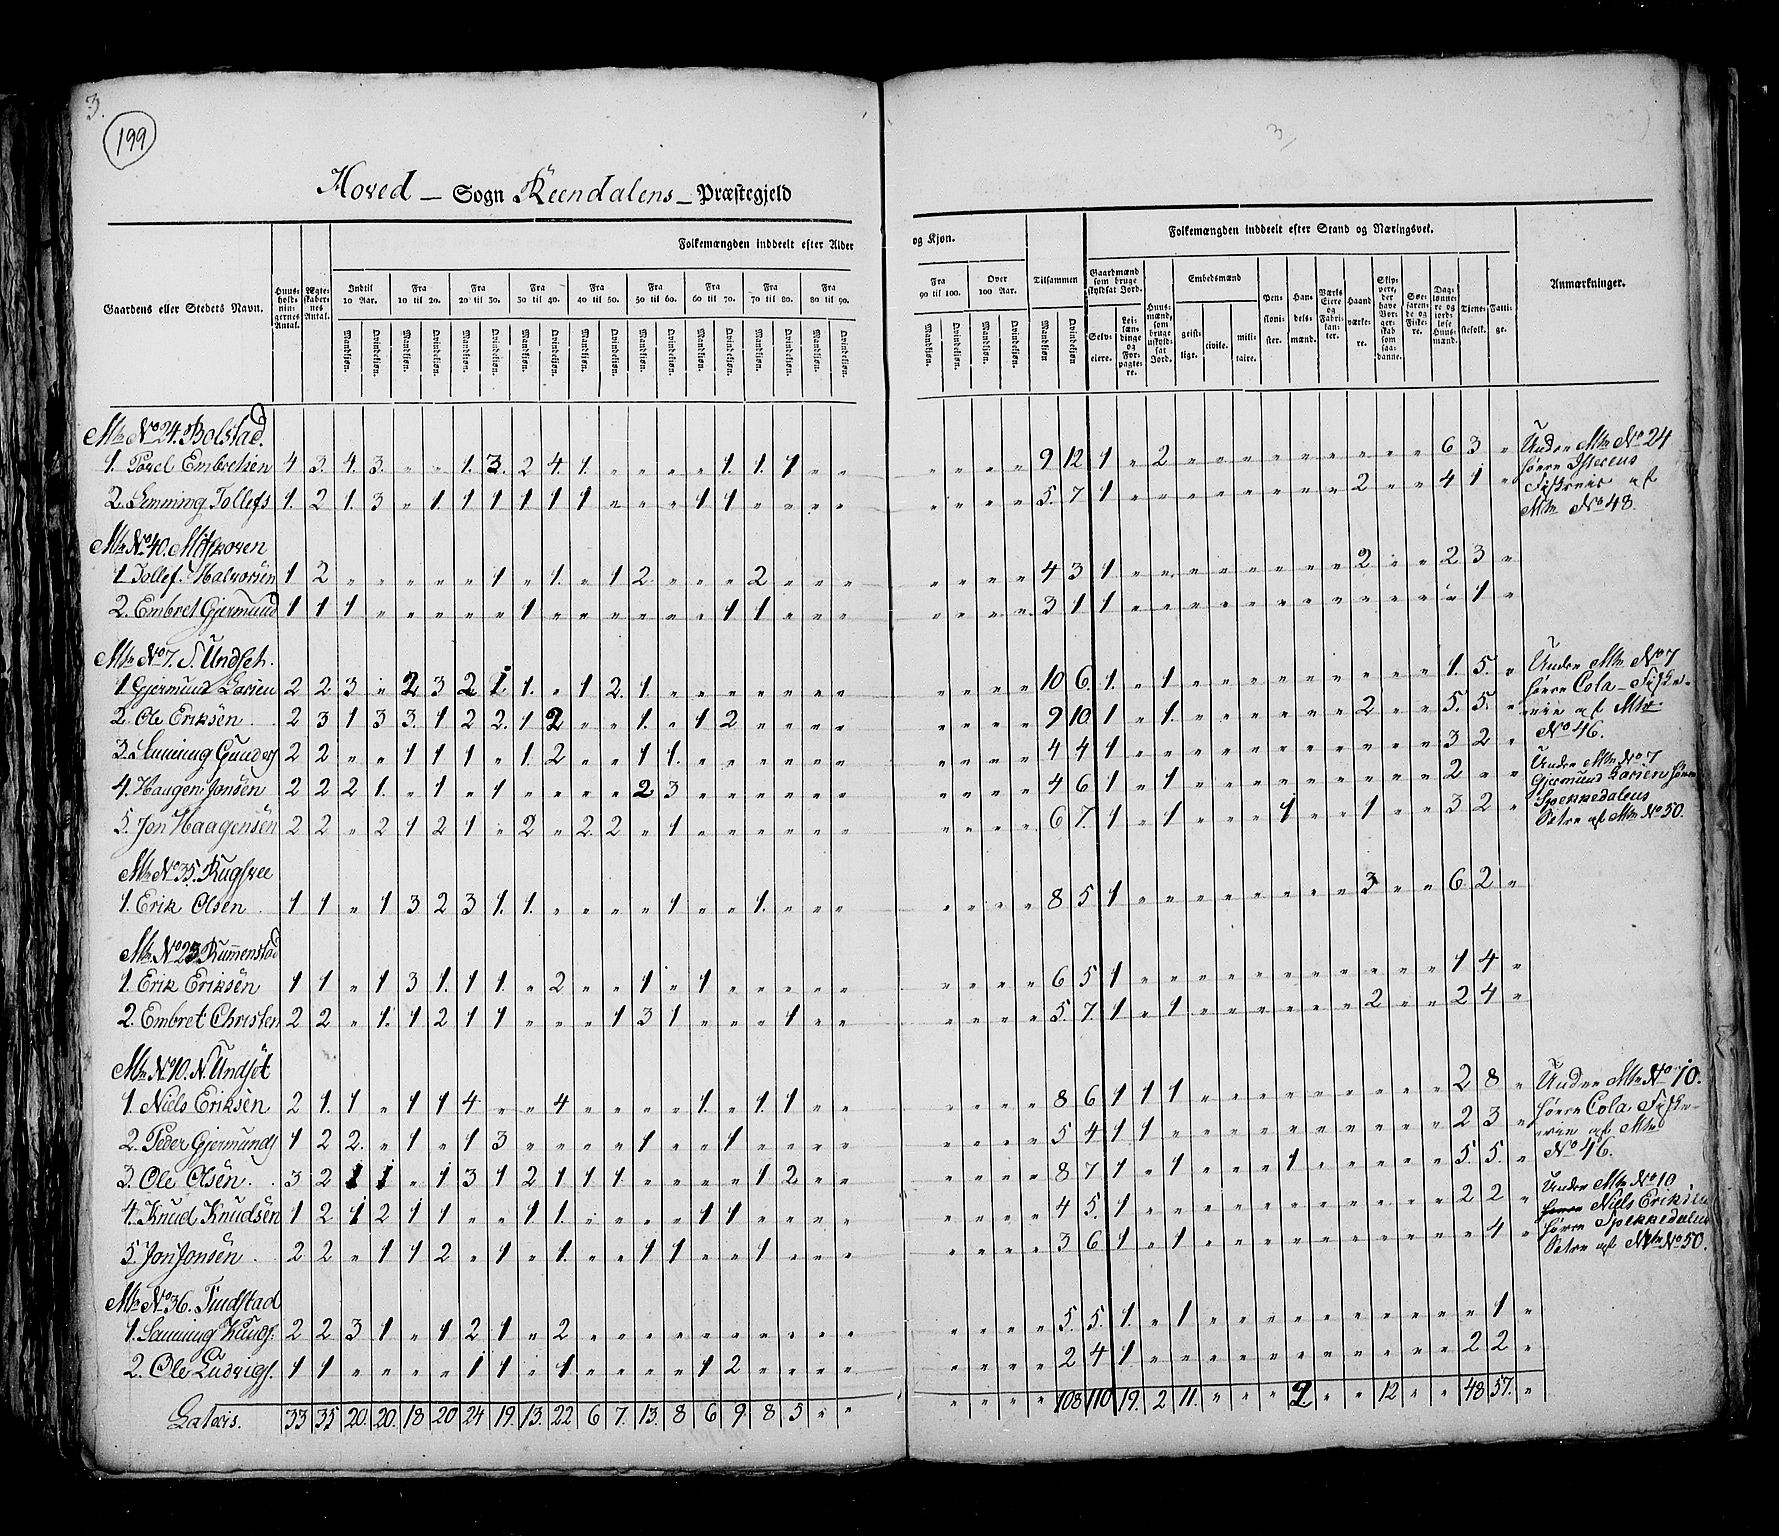 3.
199
3
Hoved — Sogn Reendalens — Præstegjeld
Gaardens eller Stedets Navn.
Huus-holdningernes Antal.
Ægteskabernes Antal.
Folkemængden inddeelt efter Alder
og Kjøn.
Indtil 10 Aar.
Fra 10 til 20.
Fra 20 til 30.
Fra 30 til 40.
Fra 40 til 50.
Fra 50 til 60.
Fra 60 til 70.
Fra 70 til 80.
Fra 80 til 90.
Fra 90 til 100.
Over 100 Aar.
Tilsammen
Mandkjøn. Qvindekjøn.
Folkemængden inddeelt efter Stand og Næringsvei.
Gaardmænd som bruge skyldsat Jord.
Selveiere.
Leilændinge og Forpagtere.
Huusmænd, som bruge uskyldsat Jord.
Embedsmænd
geistlige.
civile.
militaire.
Pensionister.
Handelsmænd.
Værkseiere og Fabrikanter.
Haandværkere.
Skippere, der have Borgerskab som saadanne.
Søefarende og Fiskere.
Daglønnere og jordløse Huusmænd.
Tjenestefolk.
Fattige.
Anmærkninger.
Mtr No 24. Bolstad.
1. Povel Embretsen 4 3. 4. 3. " " 1. 3. 2 4 1. " " " " 1. 1. 1 " " " " " " 9 12 1 " 2 " " " " " " " " " 6 3 "
2. Semming Tollefs 1. 2 1. 3 " 1. 1 1 1 1 1 " " " 1 1 " " " " " " " " 5. 7 1 " " " " " " " " 2 " " 4 1 "
Undre Mtr No 24
hører Isterens
Fiskerie af
Mtr No 48.
Mtr No 40. Misskoven
1 Tollef Halvorsen 1 2 " " " " " 1 " 1. " 1 2 " " " 2 " " " " " " " 4 3 1 " " " " " " " " 2 " " 2 3 "
2. Embret Gjermund 1 1 1 " " " " " 1 " " " " " " 1 1 " " " " " " " 3 1 1 " " " " " " " " " " " " 1 "
Mtr No 7. S. Undset.
1. Gjermund Larsen 2 2 3 " 2 3 2 1 1. " 1 2 1. " " " " " " " " " " " 10 6. 1. " 1 " " " " " " " " " 1. 5. "
2. Ole Eriksen 2 3 1 3 3. 1 2 2. 1 2 " " 1. " 1 2 " " " " " " " " 9 10. 1 " 1. " " " " " " 2 " " 5. 5. "
3. Semming Gunders 2 2 " " 1 1 1 " 1. 2 " " 1 1. " " " " " " " " " " 4 4 1 " " " " " " " " " " " 3 2 "
4. Haagen Jonsen 2 2 2 1. " 1 " 1 " " " " 2 3 " " " " " " " " " " 4 6 1 " 1 " " " " " " " " " 2 " "
5. Jon Haagensen 2 2 " 2 1 2 1 " 2 " 2 2 " 1 " " " " " " " " " " 6 7. 1 " 1 " " " 1 " " 1 " " 3 2 "
Undre Mtr No 7
hører Cola-Fiske-
rie af Mtr
No 46.
Undre Mtr No 7
Gjermund Larsen hører
Spekkedalens
Sætre af Mtr No 50.
Mtr No 35. Rugsvee
1. Erik Olsen 1 1 " 1 3 2 3 1. 1. " " " " 1 " " 1. " " " " " " " 8 5 1 " " " " " " " " 3 " " 6 2 "
Mtr No 23. Rummenstad
1. Erik Eriksen 1 1 " 1 3 1. 1 1. " 2 " " 1 " 1 " " " " " " " " " 6 5 1 " " " " " " " " " " " 1 4 "
2. Embret Christen 2 2 " 1. 1 2 1 1 " " " 1 3 1 " " " 1 " " " " " " 5. 7. 1 " 1 " " " " " " 2 " " 2 4 "
Mtr No 10. N. Undset
1. Niels Eriksen 2 1. 1 " 1 1 4 " " 4 " " " " 1. " 1. 1 " " " " " " 8 6 1 1 1 " " " " " " " " " 2 8 "
2. Peder Gjermunds 1 2 2. " 1 " 1 3 " " " " 1 " " 1 " " " " " " " " 5 4 1 1 " " " " " " " " " " 2 3 "
3. Ole Olsen 3 2 1 1 " 1 3 1 2 1 1 1. " " " " 1 2 " " " " " " 8 7 1 " 1 " " " 1 " " " " " 5. 5. "
4. Knud Knudsen 1 2 1 2 1 1 " " 1. 1. " " " " 1 1 " " " " " " " " 4 5. 1 " " " " " " " " " " " 2 2 "
5. Jon Jonsen 2 2 " 1 1 2 " 1 " 1. " " 1 1 " " 1 " " " " " " " 3 6 1 " 1 " " " " " " " " " " 4 "
Undre Mtr No 10.
hører Cola Fiske-
rie af Mtr
No 46.
Undre Mtr No 10
Niels Eriksen
hører Spekkedalens
Sætre af Mtr No 50.
Mtr No 36. Finstad
1. Semming Knuds. 2 2 3 1 " 1 2 1 " 2 " " " " " " " " " " " " " " 5. 5. 1. " 1 " " " " " " " " " " 1 "
2. Ole Ludvigs. 1 1 " " " " 1 1 " 1 " " " " 1 2 " " " " " " " " 2 4 1 " " " " " " " " " " " 2 2 "
Lateris. 33 35 20. 20. 18 20 24 19. 13. 22 6 7. 13. 8 6 9. 8 5 " " " " " " 108 110 19. 2 11. " " " 2 " " 12 " " 48 57. "